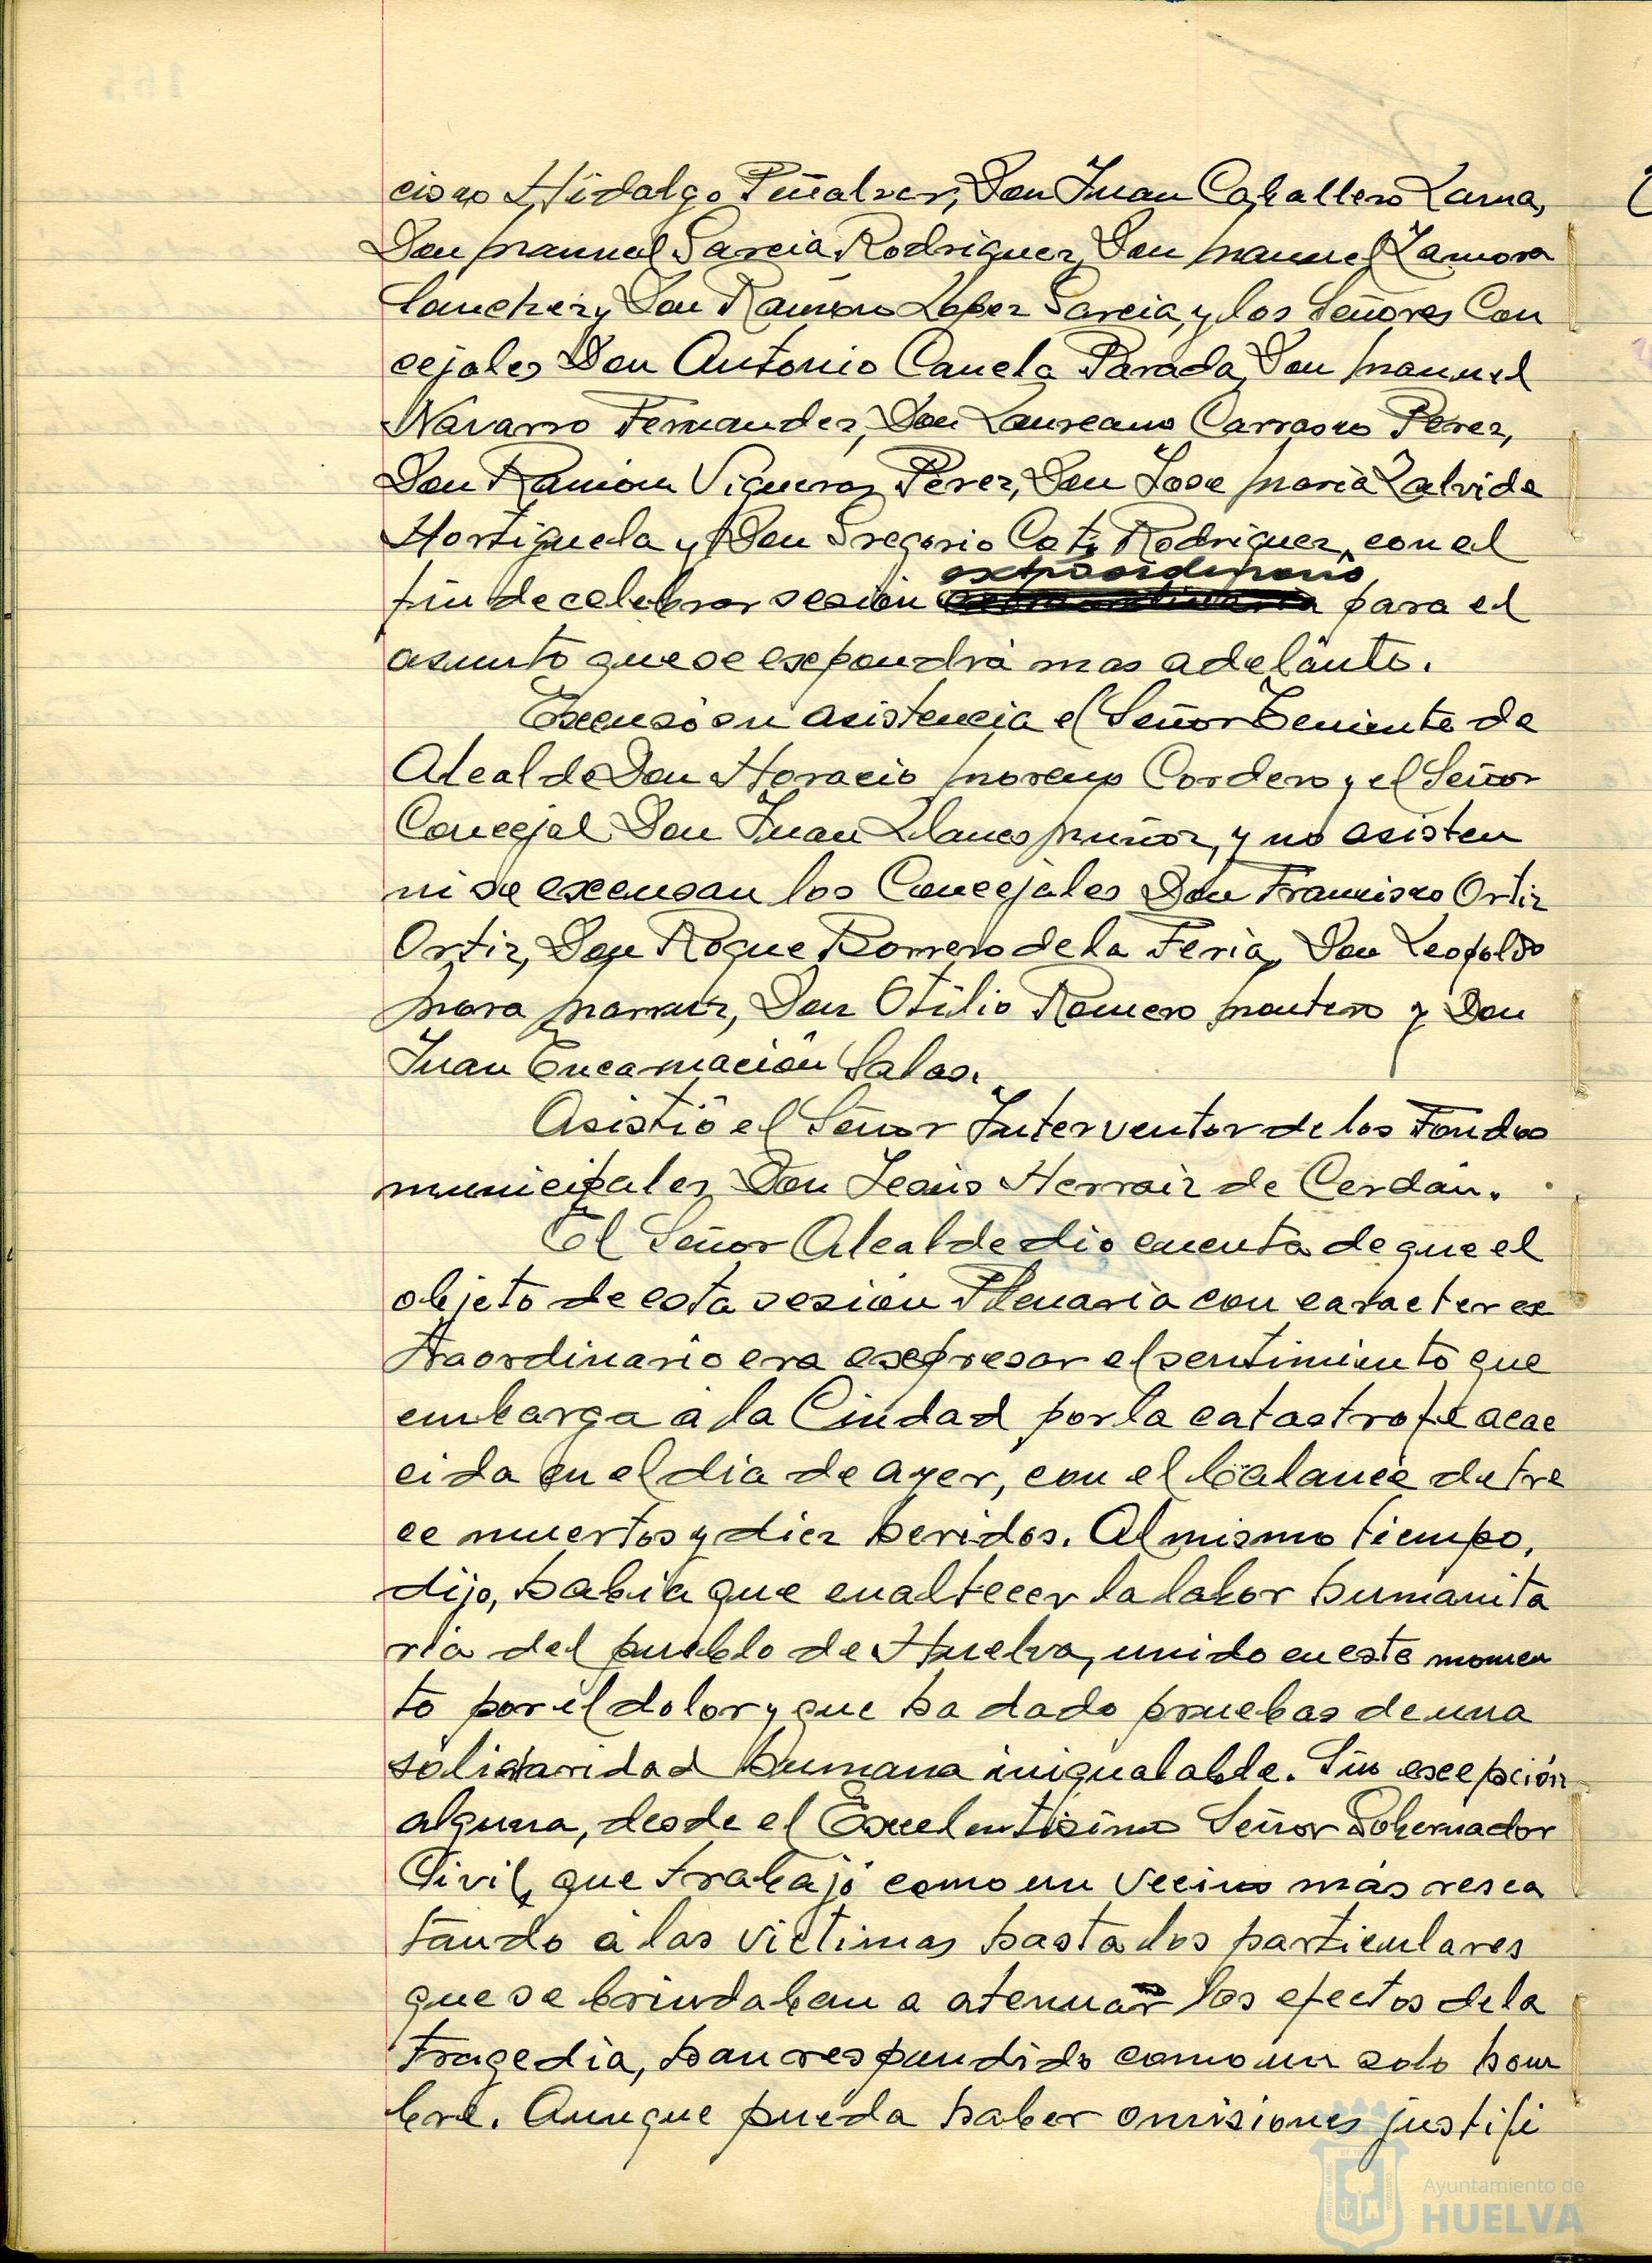 cisco Hidalgo Peñalver, Don Juan Caballero Lama,
Don Manuel Garcia Rodriguez, Don Manuel Zamora
Sanchez y Don Ramón Lopez Garcia, y los Señores Con
cejales Don Antonio Canela Parada, Don Manuel
Navarro Fernandez, Don Laureano Carrasco Perez,
Don Ramón Vigueras Perez, Don Jose Maria Zalvide
Hortiguela y Don Gregorio Rodriguez, con el
extraordinario
fin de celebrar sesión para el
asunto que se expondrá mas adelante.
Excusó su asistencia el Señor Teniente de
Alcalde Don Horacio Moreno Cordero y el Señor
Concejal Don Juan Llanes Muñoz, y no asisten
ni se excusan los Concejales Don Francisco Ortiz
Ortiz, Don Roque Romero de la Feria, Don Leopoldo
Mora Don Otilio Romero Montero y Don
Juan Encarnación Salas.
Asistió el Señor Interventor de los Fondos
municipales Don Jesús Herraiz de Cerdán.
El Señor Alcalde dio cuenta de que el
objeto de esta sesión Plenaria con caracter ex
traordinario era expresar el sentimiento que
embarga a la Ciudad por la catastrofe acae
cida en el dia de ayer, con el balance de tre
ce muertos y diez heridos. Al mismo tiempo,
dijo, habia que enaltecer la labor humanita
ria del pueblo de Huelva, unido en este momen
to por el dolor y que ha dado pruebas de una
solidaridad humana inigualable. Sin excepción
alguna, desde el Excelentisimo Señor Gobernador
Civil, que trabajó como un vecino más resca
tando a las victimas hasta los particulares
que se brindaban a atenuar los efectos de la
tragedia, han respondido como un solo hom
bre. Aunque pueda haber omisiones justifi
Ayuntamiento de
HUELVA